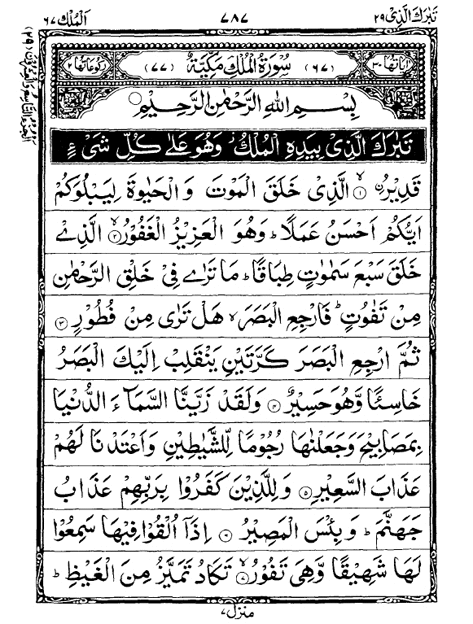 تبٰرك الذی ٢٩
٧٨٧
الملك ٦٧
اٰیاتها ٣٠ (٦٧) سُوْرَةُ الْمُلْكِ مَكِّیَّةٌ (٧٧) رکوعاتها ٢
بِسْمِ اللهِ الرَّحْمٰنِ الرَّحِیْمِ
تَبٰرَكَ الَّذِیْ بِیَدِهِ الْمُلْكُ ز وَهُوَ عَلٰی كُلِّ شَیْءٍ
قَدِیْرُ ۙ﴿١﴾ الَّذِیْ خَلَقَ الْمَوْتَ وَ الْحَیٰوةَ لِیَبْلُوَكُمْ
اَیُّكُمْ اَحْسَنُ عَمَلًا ؕ وَهُوَ الْعَزِیْزُ الْغَفُوْرُ ۙ﴿٢﴾ الَّذِیْ
خَلَقَ سَبْعَ سَمٰوٰتٍ طِبَاقًا ؕ مَا تَرٰی فِیْ خَلْقِ الرَّحْمٰنِ
مِنْ تَفٰوُتٍ ؕ فَارْجِعِ الْبَصَرَ ۙ هَلْ تَرٰی مِنْ فُطُوْرٍ ﴿٣﴾
ثُمَّ ارْجِعِ الْبَصَرَ كَرَّتَیْنِ یَنْقَلِبْ اِلَیْكَ الْبَصَرُ
خَاسِئًا وَّهُوَ حَسِیْرٌ ﴿٤﴾ وَلَقَدْ زَیَّنَّا السَّمَآءَ الدُّنْیَا
بِمَصَابِیْحَ وَجَعَلْنٰهَا رُجُوْمًا لِّلشَّیٰطِیْنِ وَاَعْتَدْنَا لَهُمْ
عَذَابَ السَّعِیْرِ ﴿٥﴾ وَلِلَّذِیْنَ كَفَرُوْا بِرَبِّهِمْ عَذَابُ
جَهَنَّمَ ؕ وَبِئْسَ الْمَصِیْرُ ﴿٦﴾ اِذَاۤ اُلْقُوْا فِیْهَا سَمِعُوْا
لَهَا شَهِیْقًا وَّهِیَ تَفُوْرُ ۙ﴿٧﴾ تَكَادُ تَمَیَّزُ مِنَ الْغَیْظِ ؕ
منزل ٧